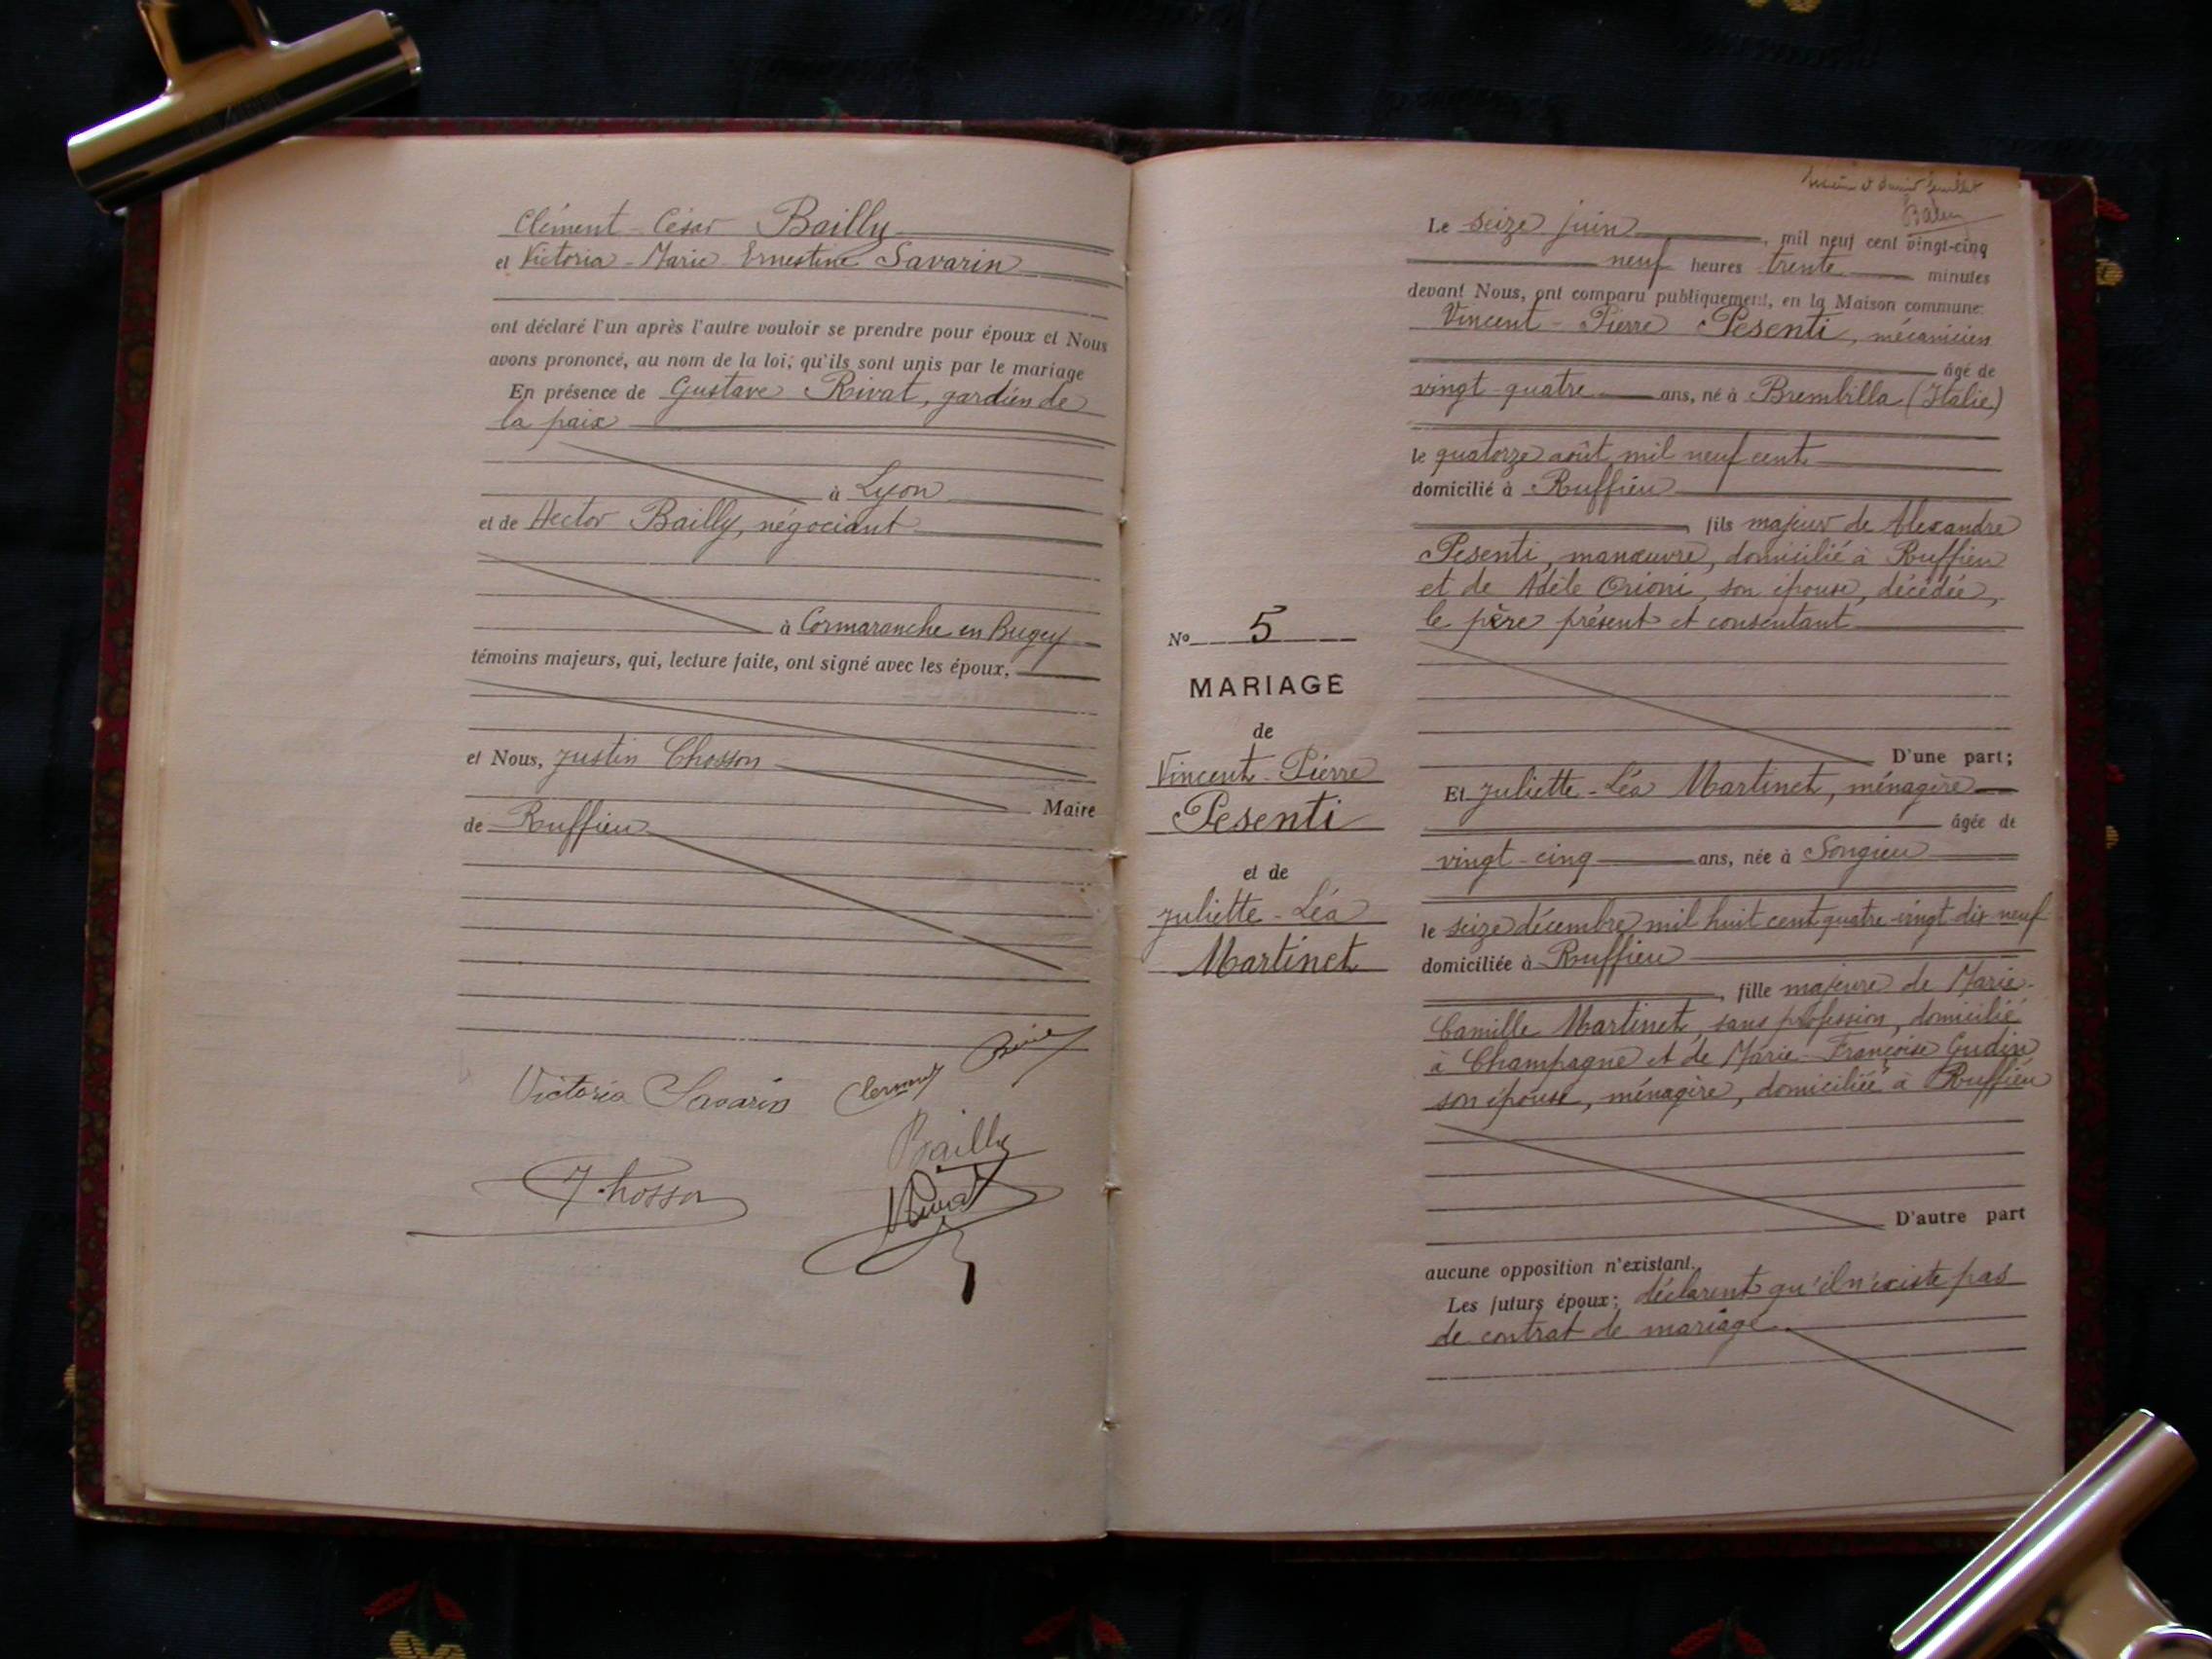 Clément - César Bailly
et Victoria - Marie Ernestine Savarin
ont déclaré l'un après l'autre vouloir se prendre pour époux et Nous
avons prononcé, au nom de la loi, qu'ils sont unis par le mariage
En présence de Gustave Rivat, gardien de
la paix
à Lyon
et de Hector Bailly, négociant
à Cormaranche en Bugey
témoins majeurs, qui, lecture faite, ont signé avec les époux,
et Nous, Justin Chosson
Maire
de Ruffieu
Victoria Savarin
Bailly
Rivat
Chosson
Le seize juin, mil neuf cent vingt-cinq
neuf heures trente minutes
devant Nous, ont comparu publiquement, en la Maison commune:
Vincent - Pierre Pesenti, mécanicien
âgé de
vingt quatre ans, né à Brembilla (Italie)
le quatorze août mil neuf cent
domicilié à Ruffieu
, fils majeur de Alexandre
Pesenti, manœuvre, domicilié à Ruffieu
et de Adèle Orioni, son épouse, décédée,
le père présent et consentant
D'une part;
No 5
MARIAGE
de
Vincent - Pierre
Pesenti
et de
Juliette - Léa
Martinet
Et Juliette - Léa Martinet, ménagère
âgée de
vingt - cinq ans, née à Songieu
le seize décembre mil huit cent quatre-vingt-dix-neuf
domiciliée à Ruffieu
, fille majeure de Marie-
Camille Martinet, sans profession, domicilié
à Champagne et de Marie - Françoise Gudin
son épouse, ménagère, domiciliée à Ruffieu
D'autre part
aucune opposition n'existant.
Les futurs époux; déclarent qu'il n'existe pas
de contrat de mariage.